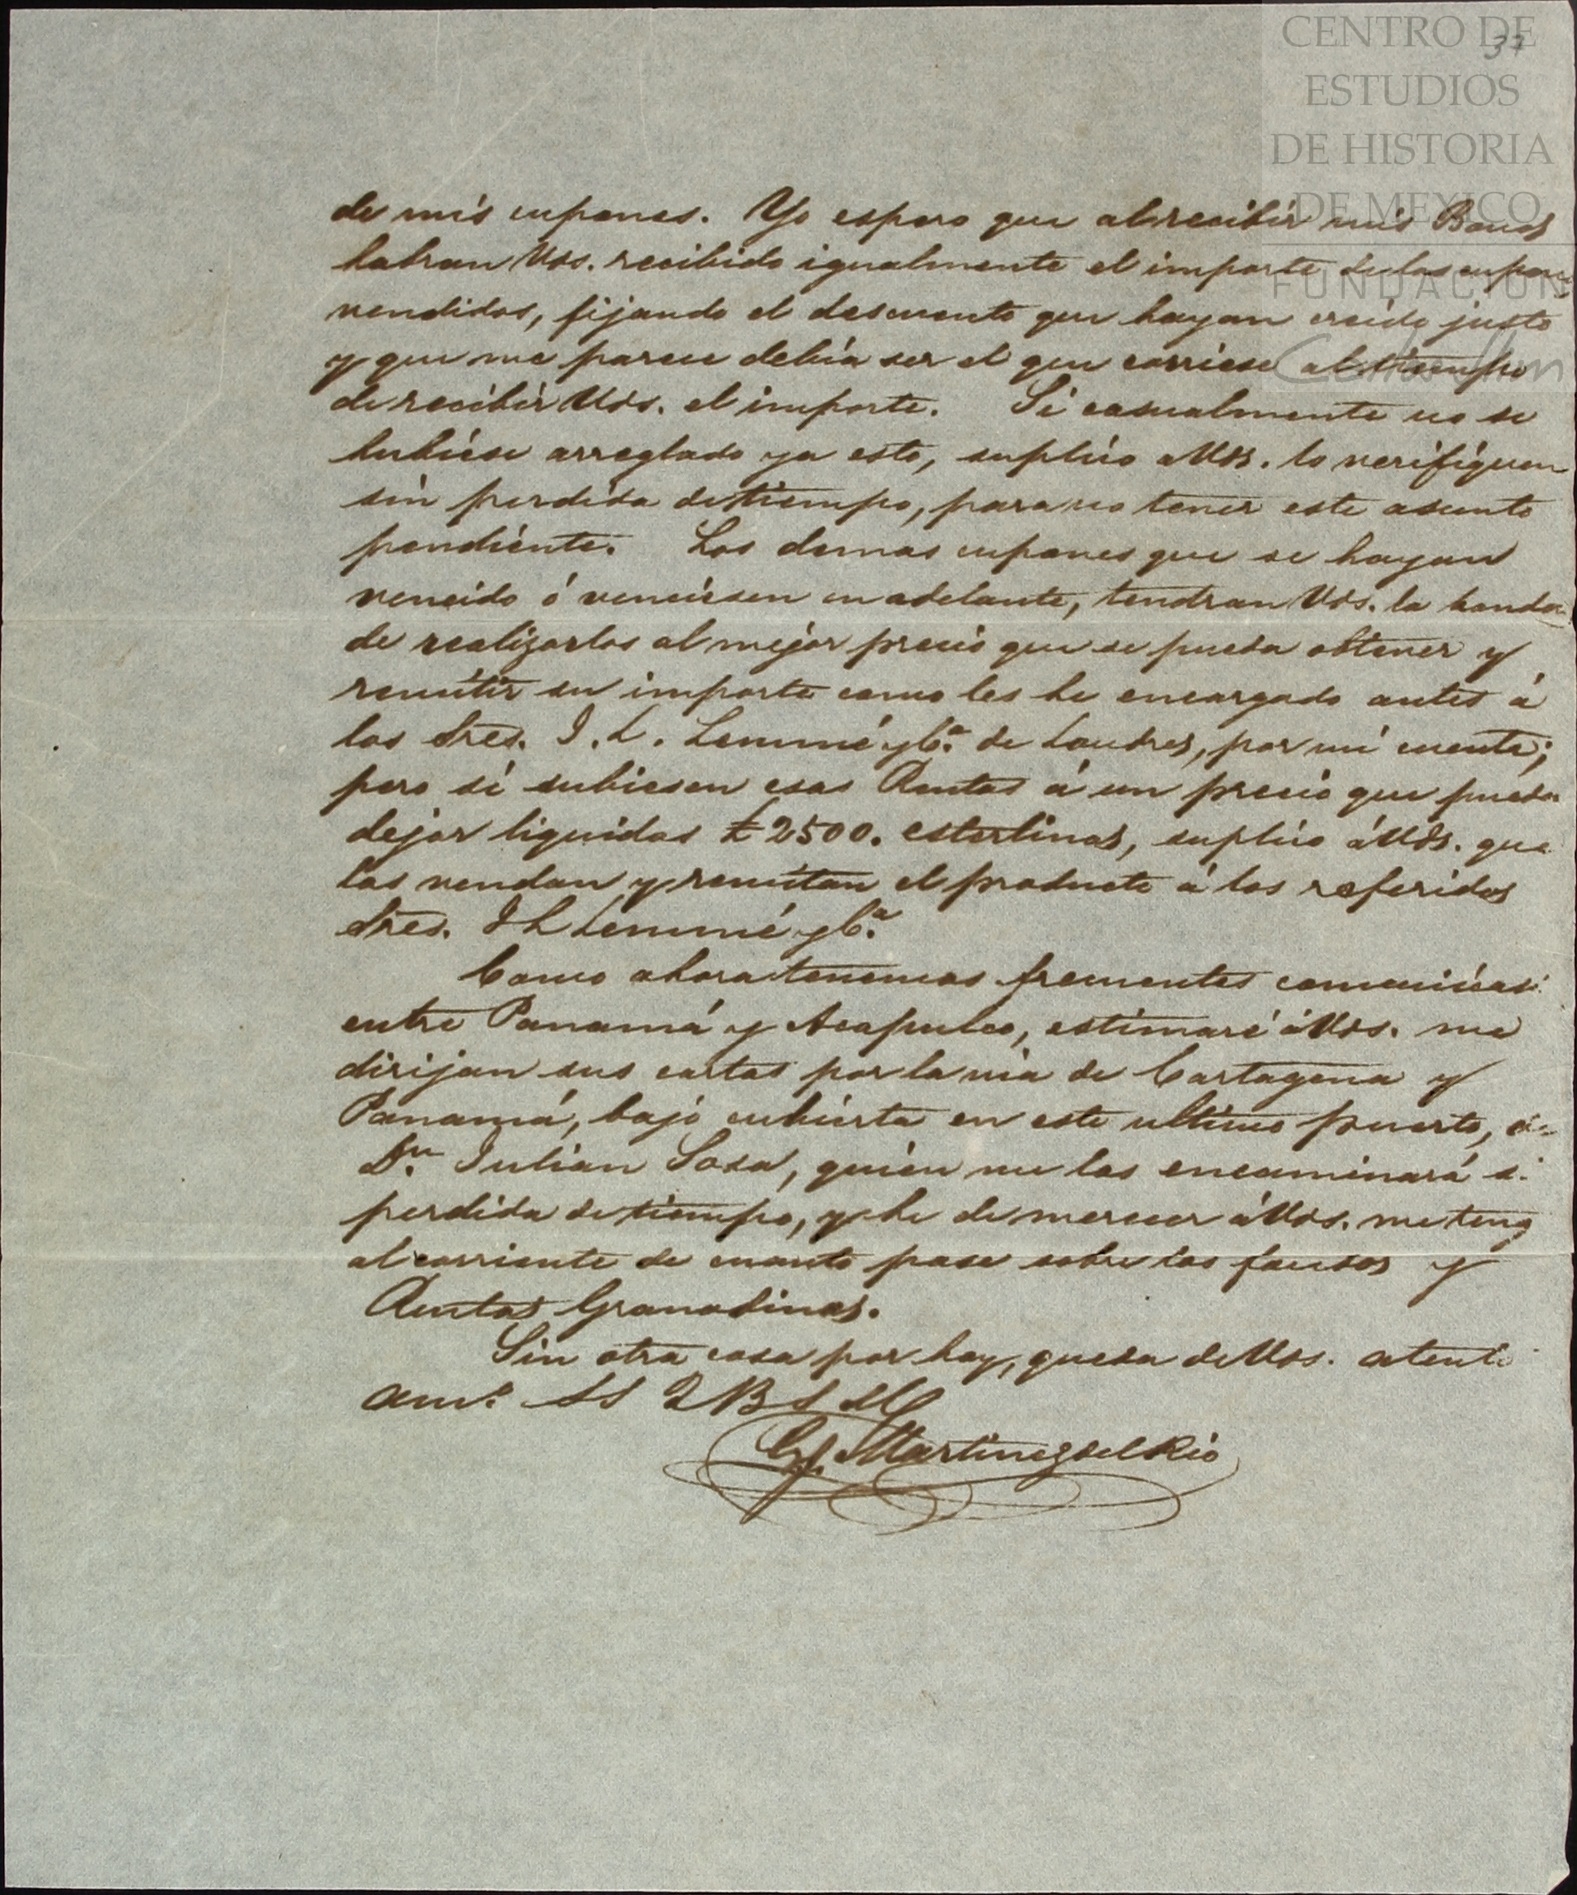 CENTRO DE
ESTUDIOS
DE HISTORIA
DE MEXICO
FUNDACIÓN
37
de mis cupones. Yo espero que al recibir mis Bonos
habran Uds. recibido igualmente el importe de los cupones
vendidos, fijando el descuento que hayan creído justo
y que me parece debía ser el que corriese al tiempo
de recibir Uds. el importe. Si casualmente no se
hubiése arreglado ya esto, suplico a Uds. lo verifiquen
sin perdida de tiempo, para no tener este asunto
pendiente. Los demas cupones que se hayan
vencido ó venciesen en adelante, tendran Uds. la bondad
de realizarlos al mejor precio que se pueda obtener y
remitir su importe como les he encargado antes á
los Sres. I. L. Lemmé y Ca. de Londres, por mi cuenta;
pero si subiesen esas Rentas á un precio que pueda
dejar liquidas £2500. esterlinas, suplico á Uds. que
las vendan y remitan el producto á los referidos
Sres. I L Lemmé y Ca.
Como ahora tenemos frecuentes
entre Panamá y Acapulco, estimaré á Uds. me
dirijan sus cartas por la via de Cartagena y
Panamá, bajo cubierta en este ultimo puerto, á
Dn. Julian Sosa, quien me las encaminará
perdida de tiempo, y he de merecer á Uds. me teng
al corriente de cuanto pase sobre los fondos y
Rentas Granadinas.
Sin otra cosa por hoy, queda de Uds. atento
amo. SS Q B S M
G. Martinez del Rio